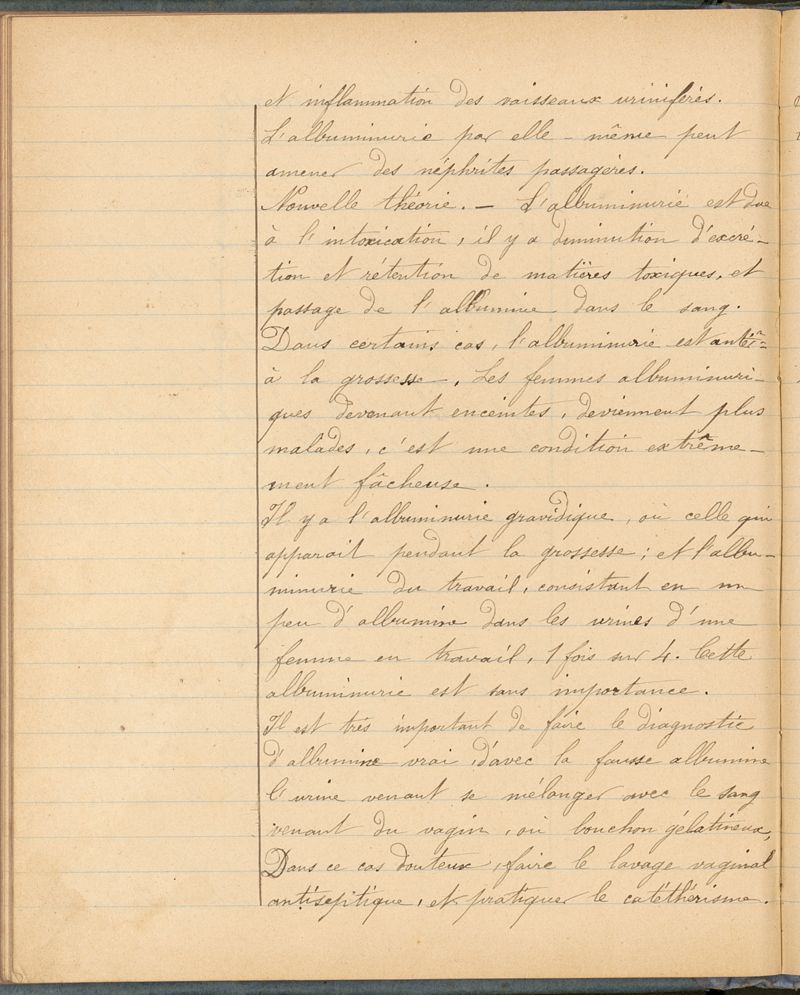 et inflammation des vaisseaux urinifères.
L'albuminurie par elle-même peut
amener des néphrites passagères.
Nouvelle théorie. — L'albuminurie est due
à l'intoxication, il y a diminution d'excré-
tion et rétention de matières toxiques, et
passage de l'albumine dans le sang.
Dans certains cas, l'albuminurie est antér
à la grossesse. Les femmes albuminuri-
ques devenant enceintes, deviennent plus
malades, c'est une condition extrême-
ment fâcheuse.
Il y a l'albuminurie gravidique, où celle qui
apparait pendant la grossesse; et l'albu-
minurie du travail, consistant en un
peu d'albumine dans les urines d'une
femme en travail, 1 fois sur 4. Cette
albuminurie est sans importance.
Il est très important de faire le diagnostic
d'albumine vrai, d'avec la fausse albumine
l'urine venant se mélanger avec le sang
venant du vagin, où bouchon gélatineux,
Dans ce cas douteux, faire le lavage vaginal
antiseptique, et pratiquer le catéthérisme.